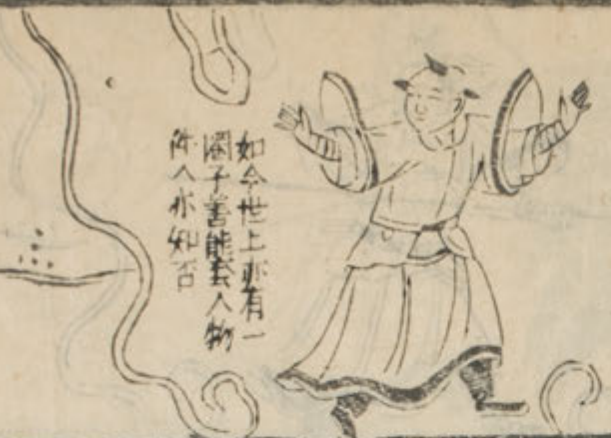 如今世上亦有一
圈子善能套人物
件人亦知否